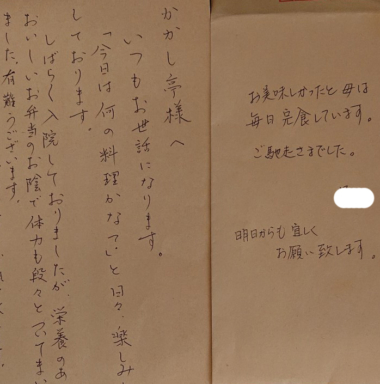 かかし亭様へ
いつもお世話になります。
「今日は何の料理かな〜」と日々、楽しみ
しております。
しばらく入院しておりましたが、栄養のあ
おいしいお弁当のお陰で体力も段々とついてまい
ました。有難うございます。
お美味しかったと母は
毎日完食しています。
ご馳走さまでした。
明日からも宜しく
お願い致します。